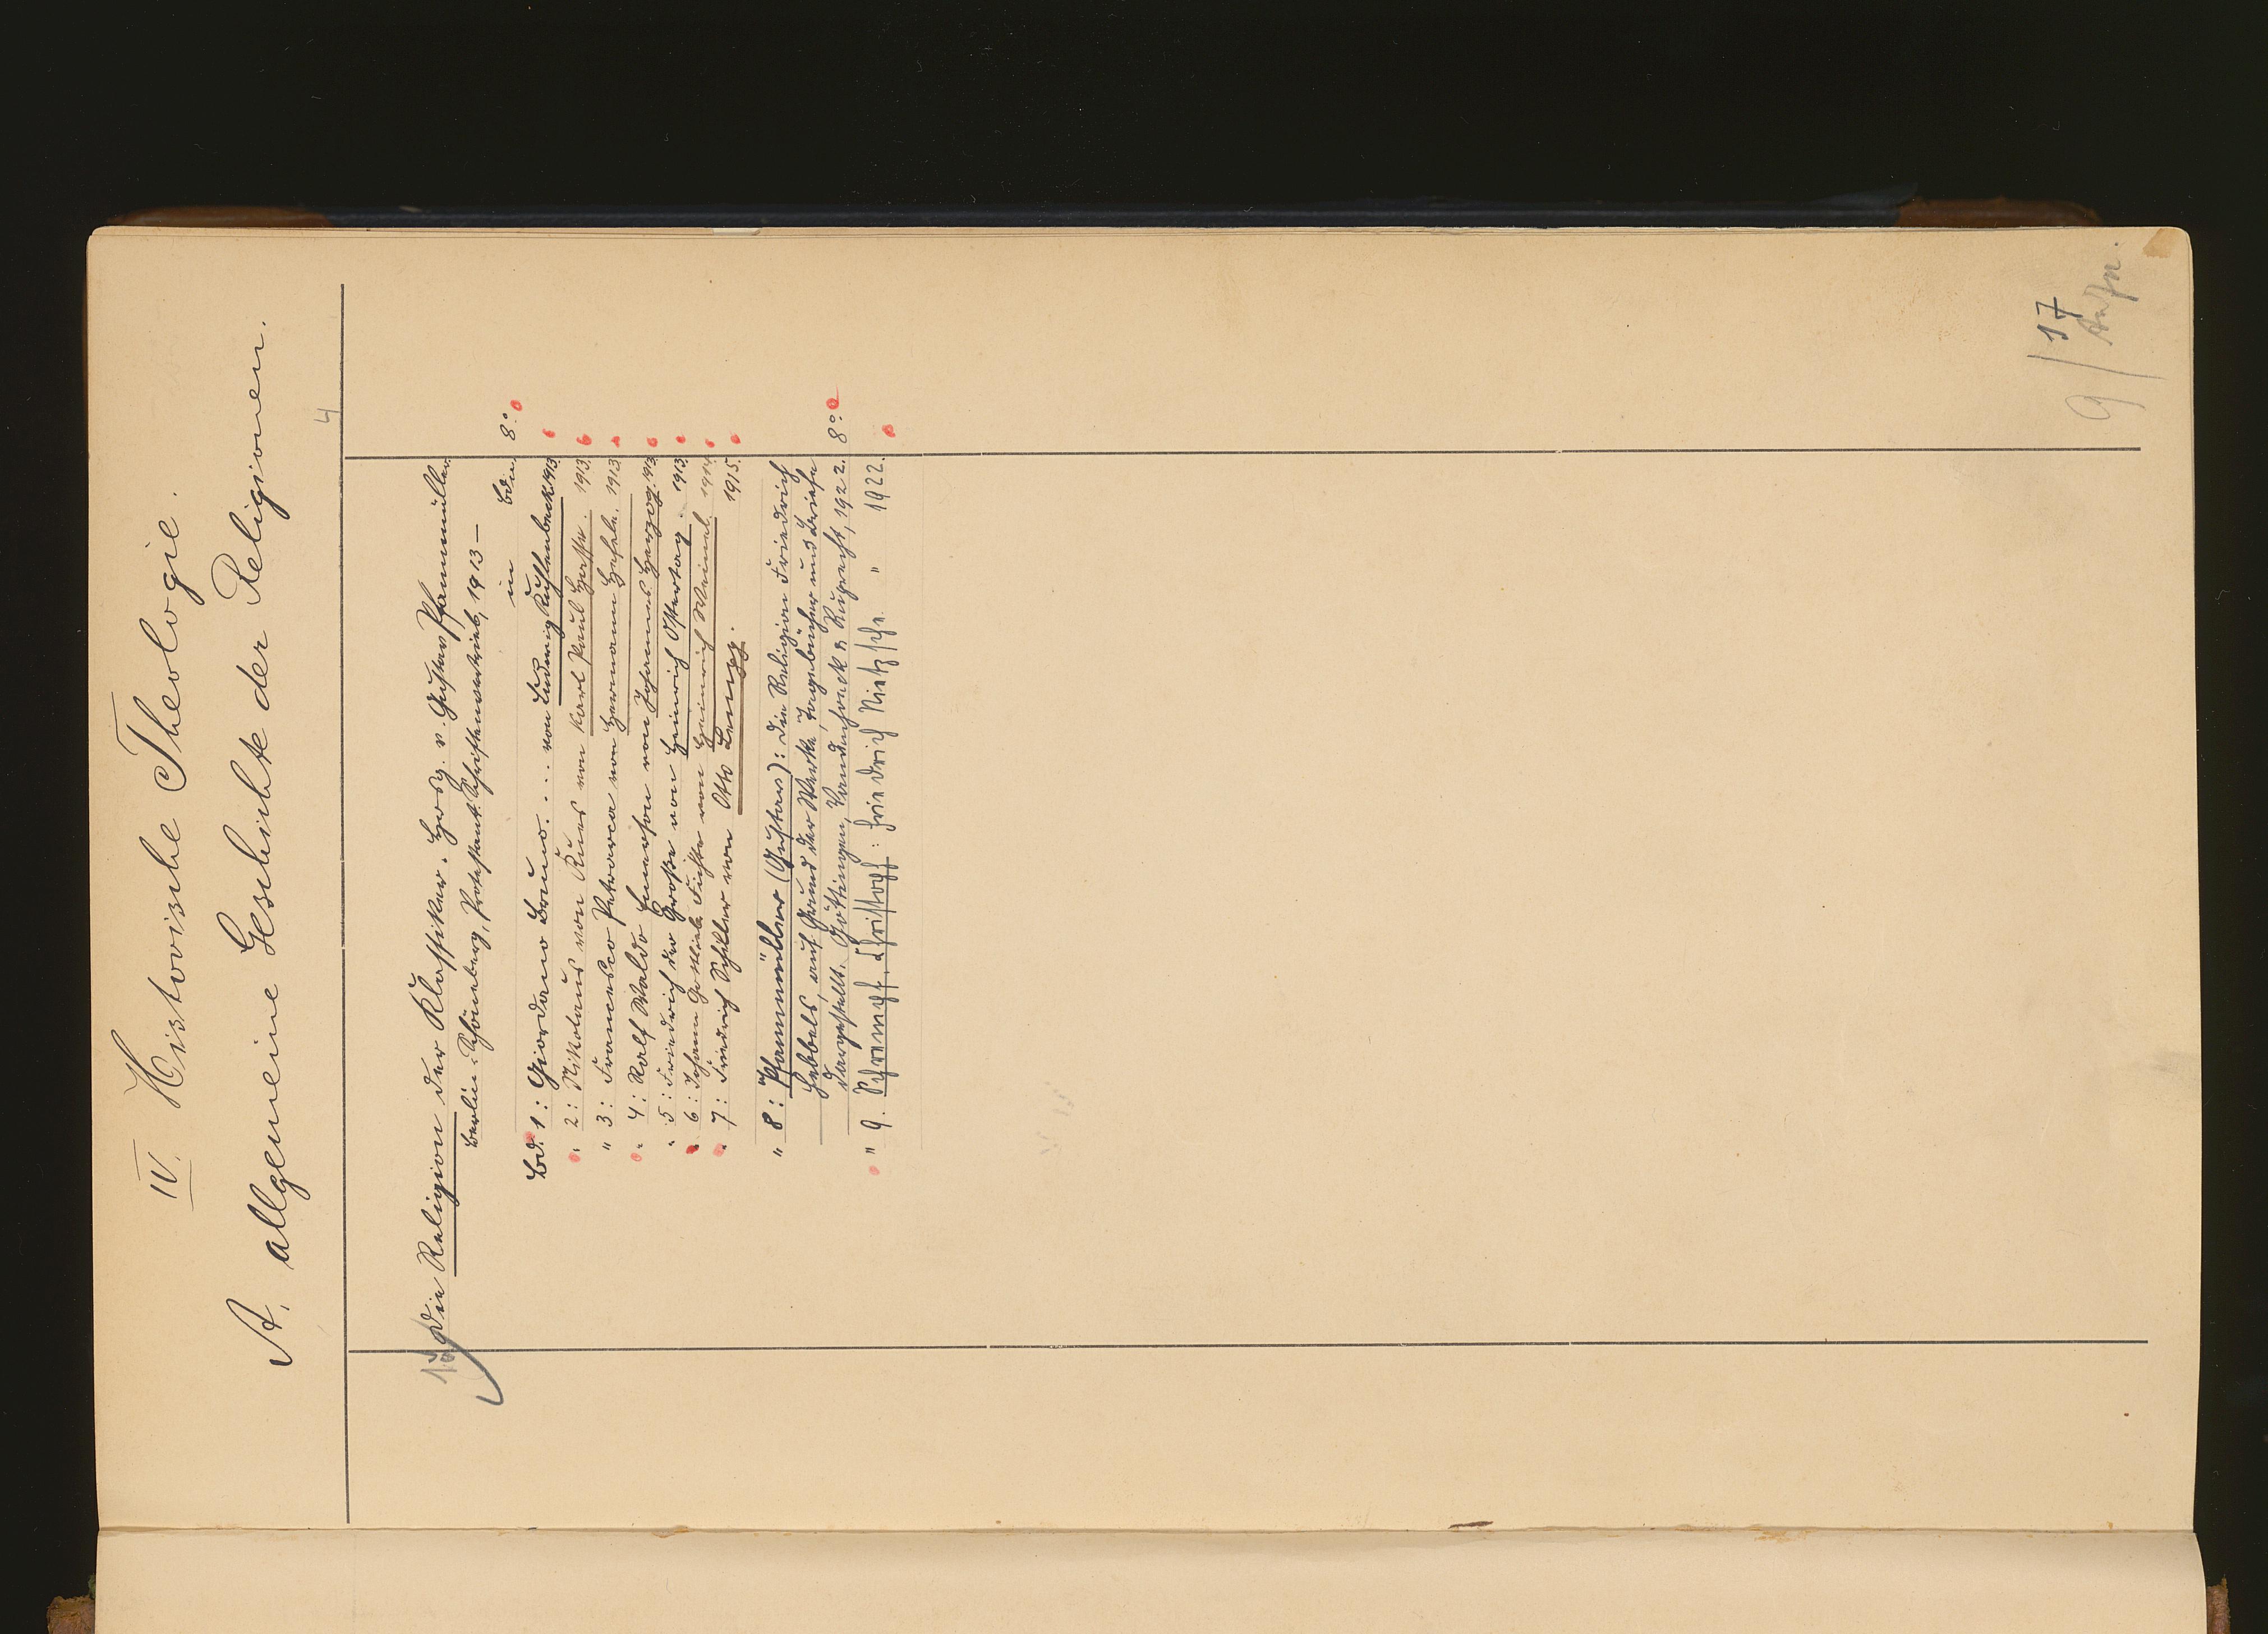 IV. Historische Theologie.
A. allgemeine Geschichte der Religionen.
4
10
Die Religion der Klassiker. Hrsg. v. Gustav Pfannmüller.
Berlin-Schöneberg, Protestant. Schriftenvertrieb, 1913 –
in Bdn. 8°.
Bd. 1: Giordano Bruno. ... von Ludwig Kuhlenbeck. 1913.
" 2: Nikolaus von Kues von Karl Paul Hasse. 1913.
" 3: Francesco Petrarca von Hermann Hefele. 1913.
" 4: Ralf Waldo Emerson von Johannes Herzog. 1913.
" 5: Friedrich der Große von Heinrich Ostertag. 1913.
" 6: Johann Gottlieb Fichte von Heinrich Weinel. 1914.
" 7: Friedrich Schiller von Otto Lempp. 1915.
" 8: Pfannmüller (Gustav): Die Religion Friedrich
Hebbels, auf Grund der Werke, Tagebücher und Briefe
dargestellt. Göttingen, Vandenhoeck & Ruprecht, 1922. 8°.
" 9. Schrempf, Christoph: Friedrich Nietzsche. " 1922.
9/17